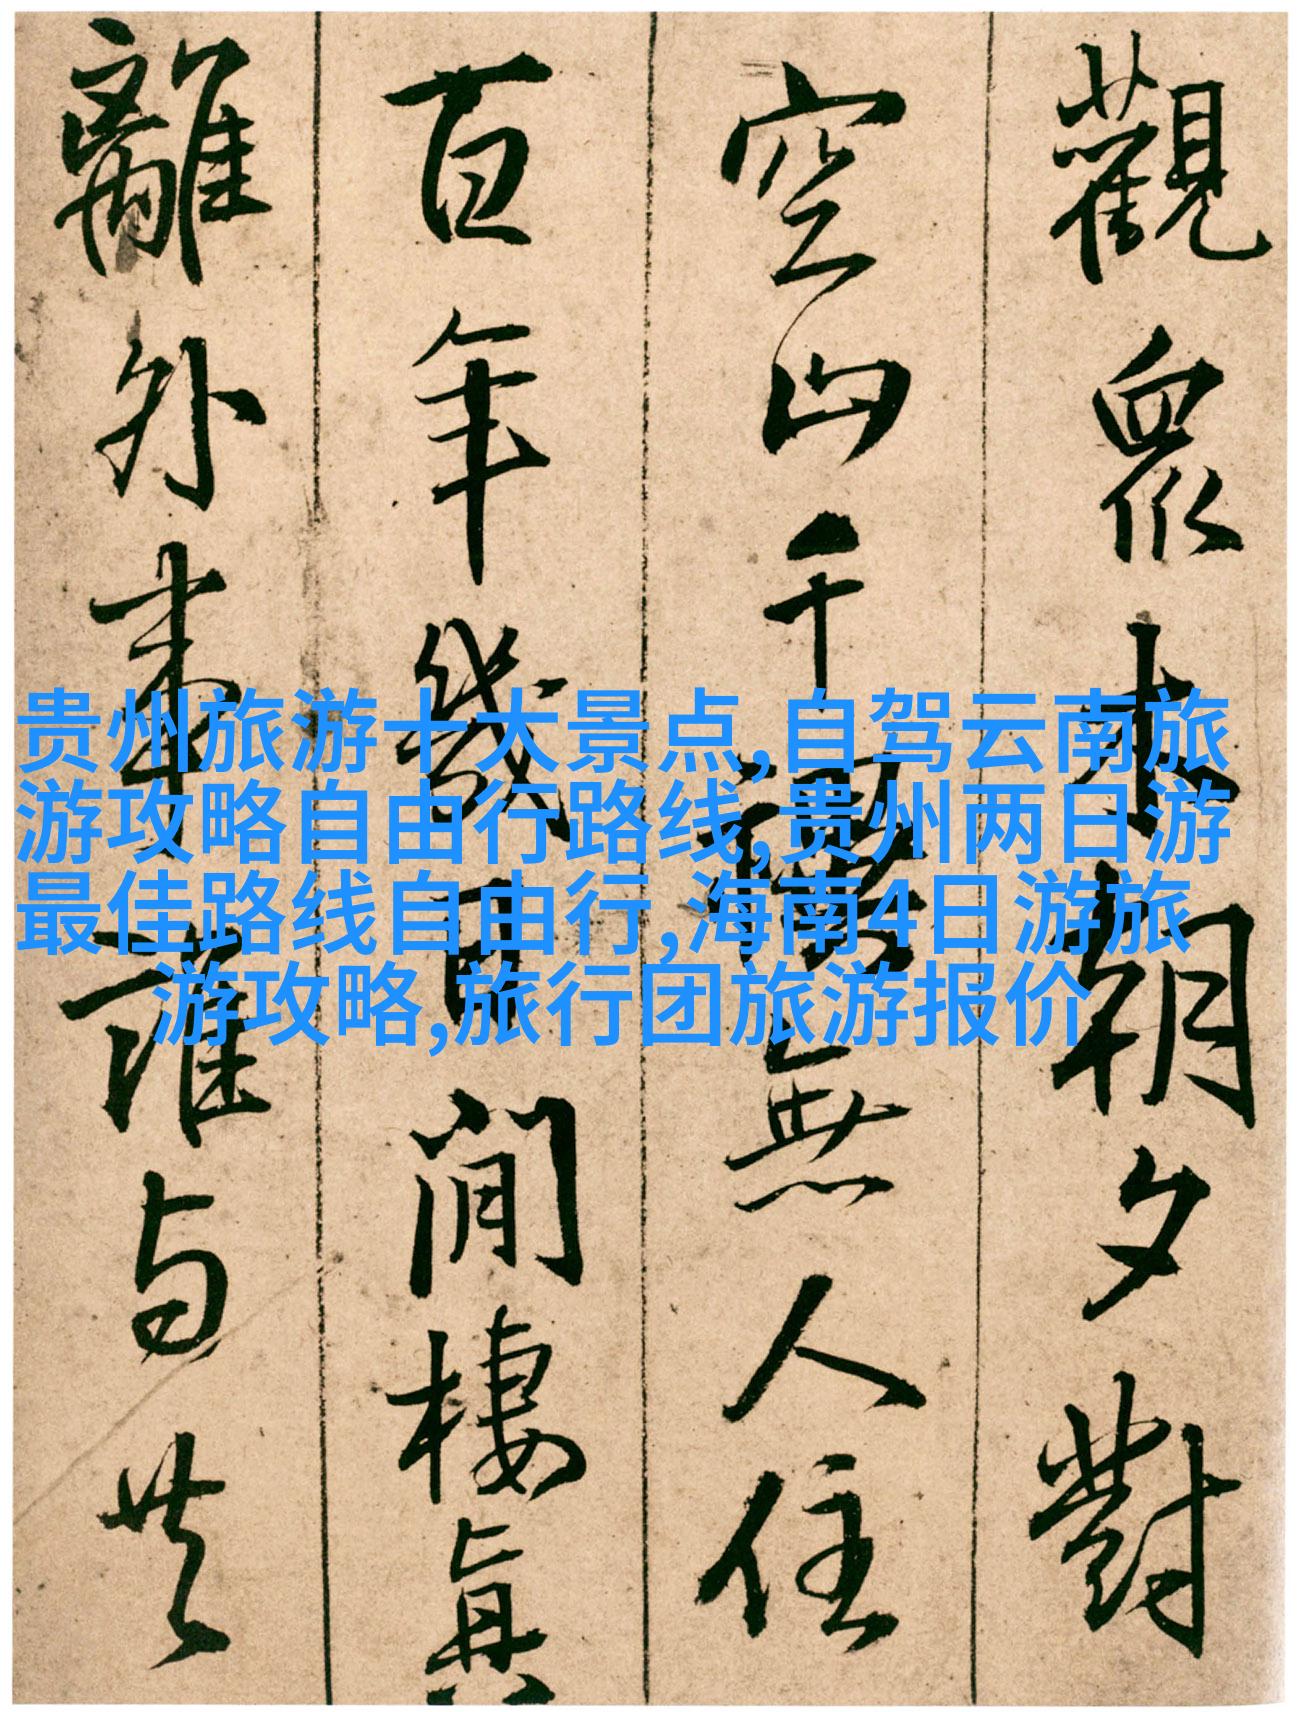 觀衆朝夕對
空山千無人住
百年幾閒棲真
離外事誰与共
贵州旅游十大景点,自驾云南旅
游攻略自由行路线,贵州两日游
最佳路线自由行,海南4日游旅
游攻略,旅行团旅游报价